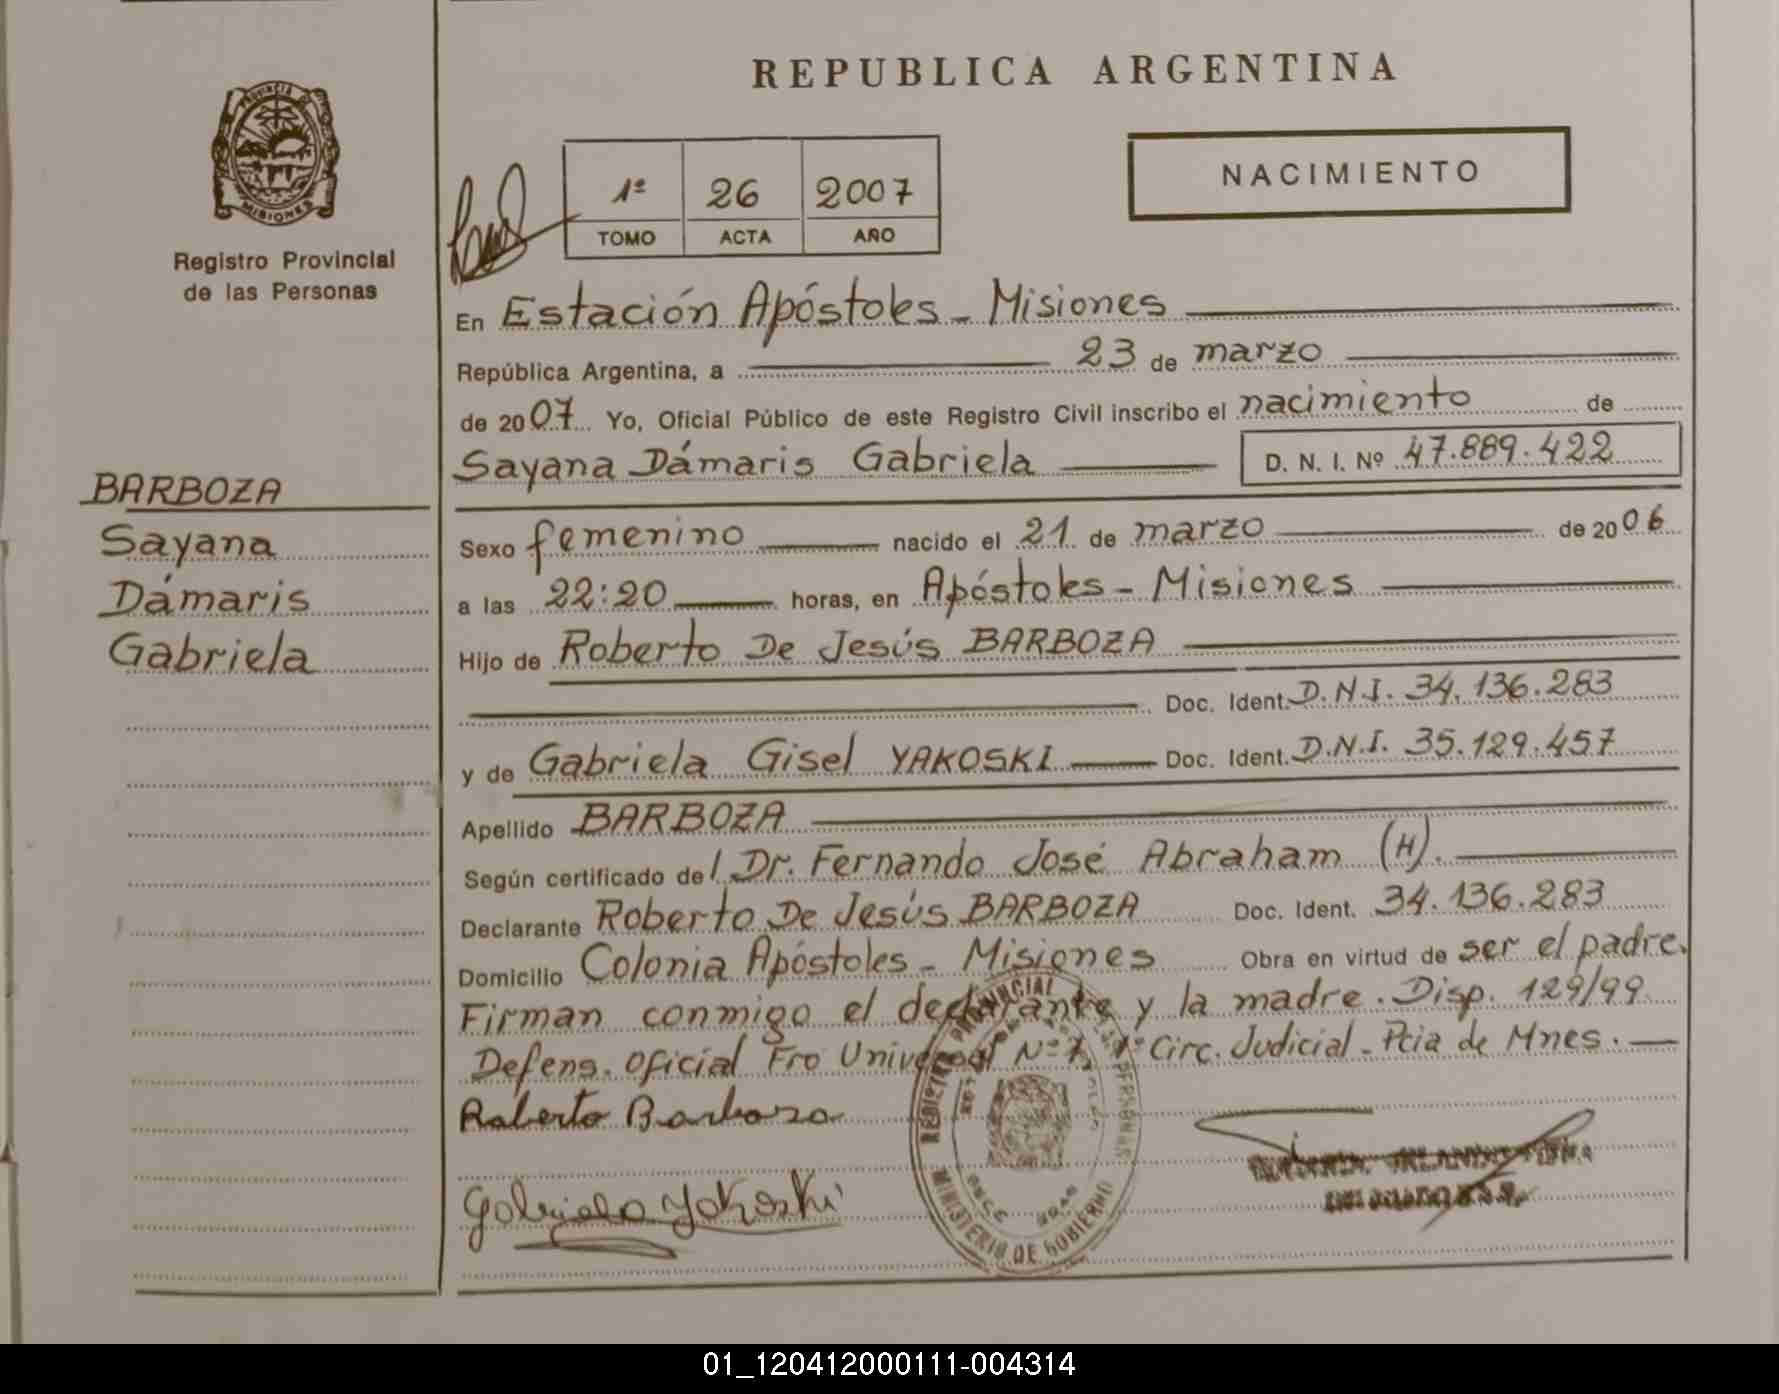 REPUBLICA ARGENTINA
PROVINCIA DE
MISIONES
Registro Provincial
de las Personas
1º 26 2007
TOMO ACTA AÑO
NACIMIENTO
En Estación Apóstoles - Misiones
República Argentina, a 23 de marzo
de 2007 Yo, Oficial Público de este Registro Civil inscribo el nacimiento de
Sayana Dámaris Gabriela D. N. I. Nº 47.889.422
BARBOZA
Sayana
Dámaris
Gabriela
Sexo femenino nacido el 21 de marzo de 2006
a las 22:20 horas, en Apóstoles - Misiones
Hijo de Roberto De Jesús BARBOZA
Doc. Ident. D.N.I. 34.136.283
y de Gabriela Gisel YAKOSKI Doc. Ident. D.N.I. 35.129.457
Apellido BARBOZA
Según certificado del Dr. Fernando José Abraham (H).
Declarante Roberto De Jesús BARBOZA Doc. Ident. 34.136.283
Domicilio Colonia Apóstoles - Misiones Obra en virtud de ser el padre.
Firman conmigo el declarante y la madre. Disp. 129/99
Defens. Oficial Fro Universal Nº 7, 1º Circ. Judicial - Pcia de Mnes.
Roberto Barboza
Gabriela Yakoski
REGISTRO PROVINCIAL DE LAS PERSONAS
MINISTERIO DE GOBIERNO
01_120412000111-004314